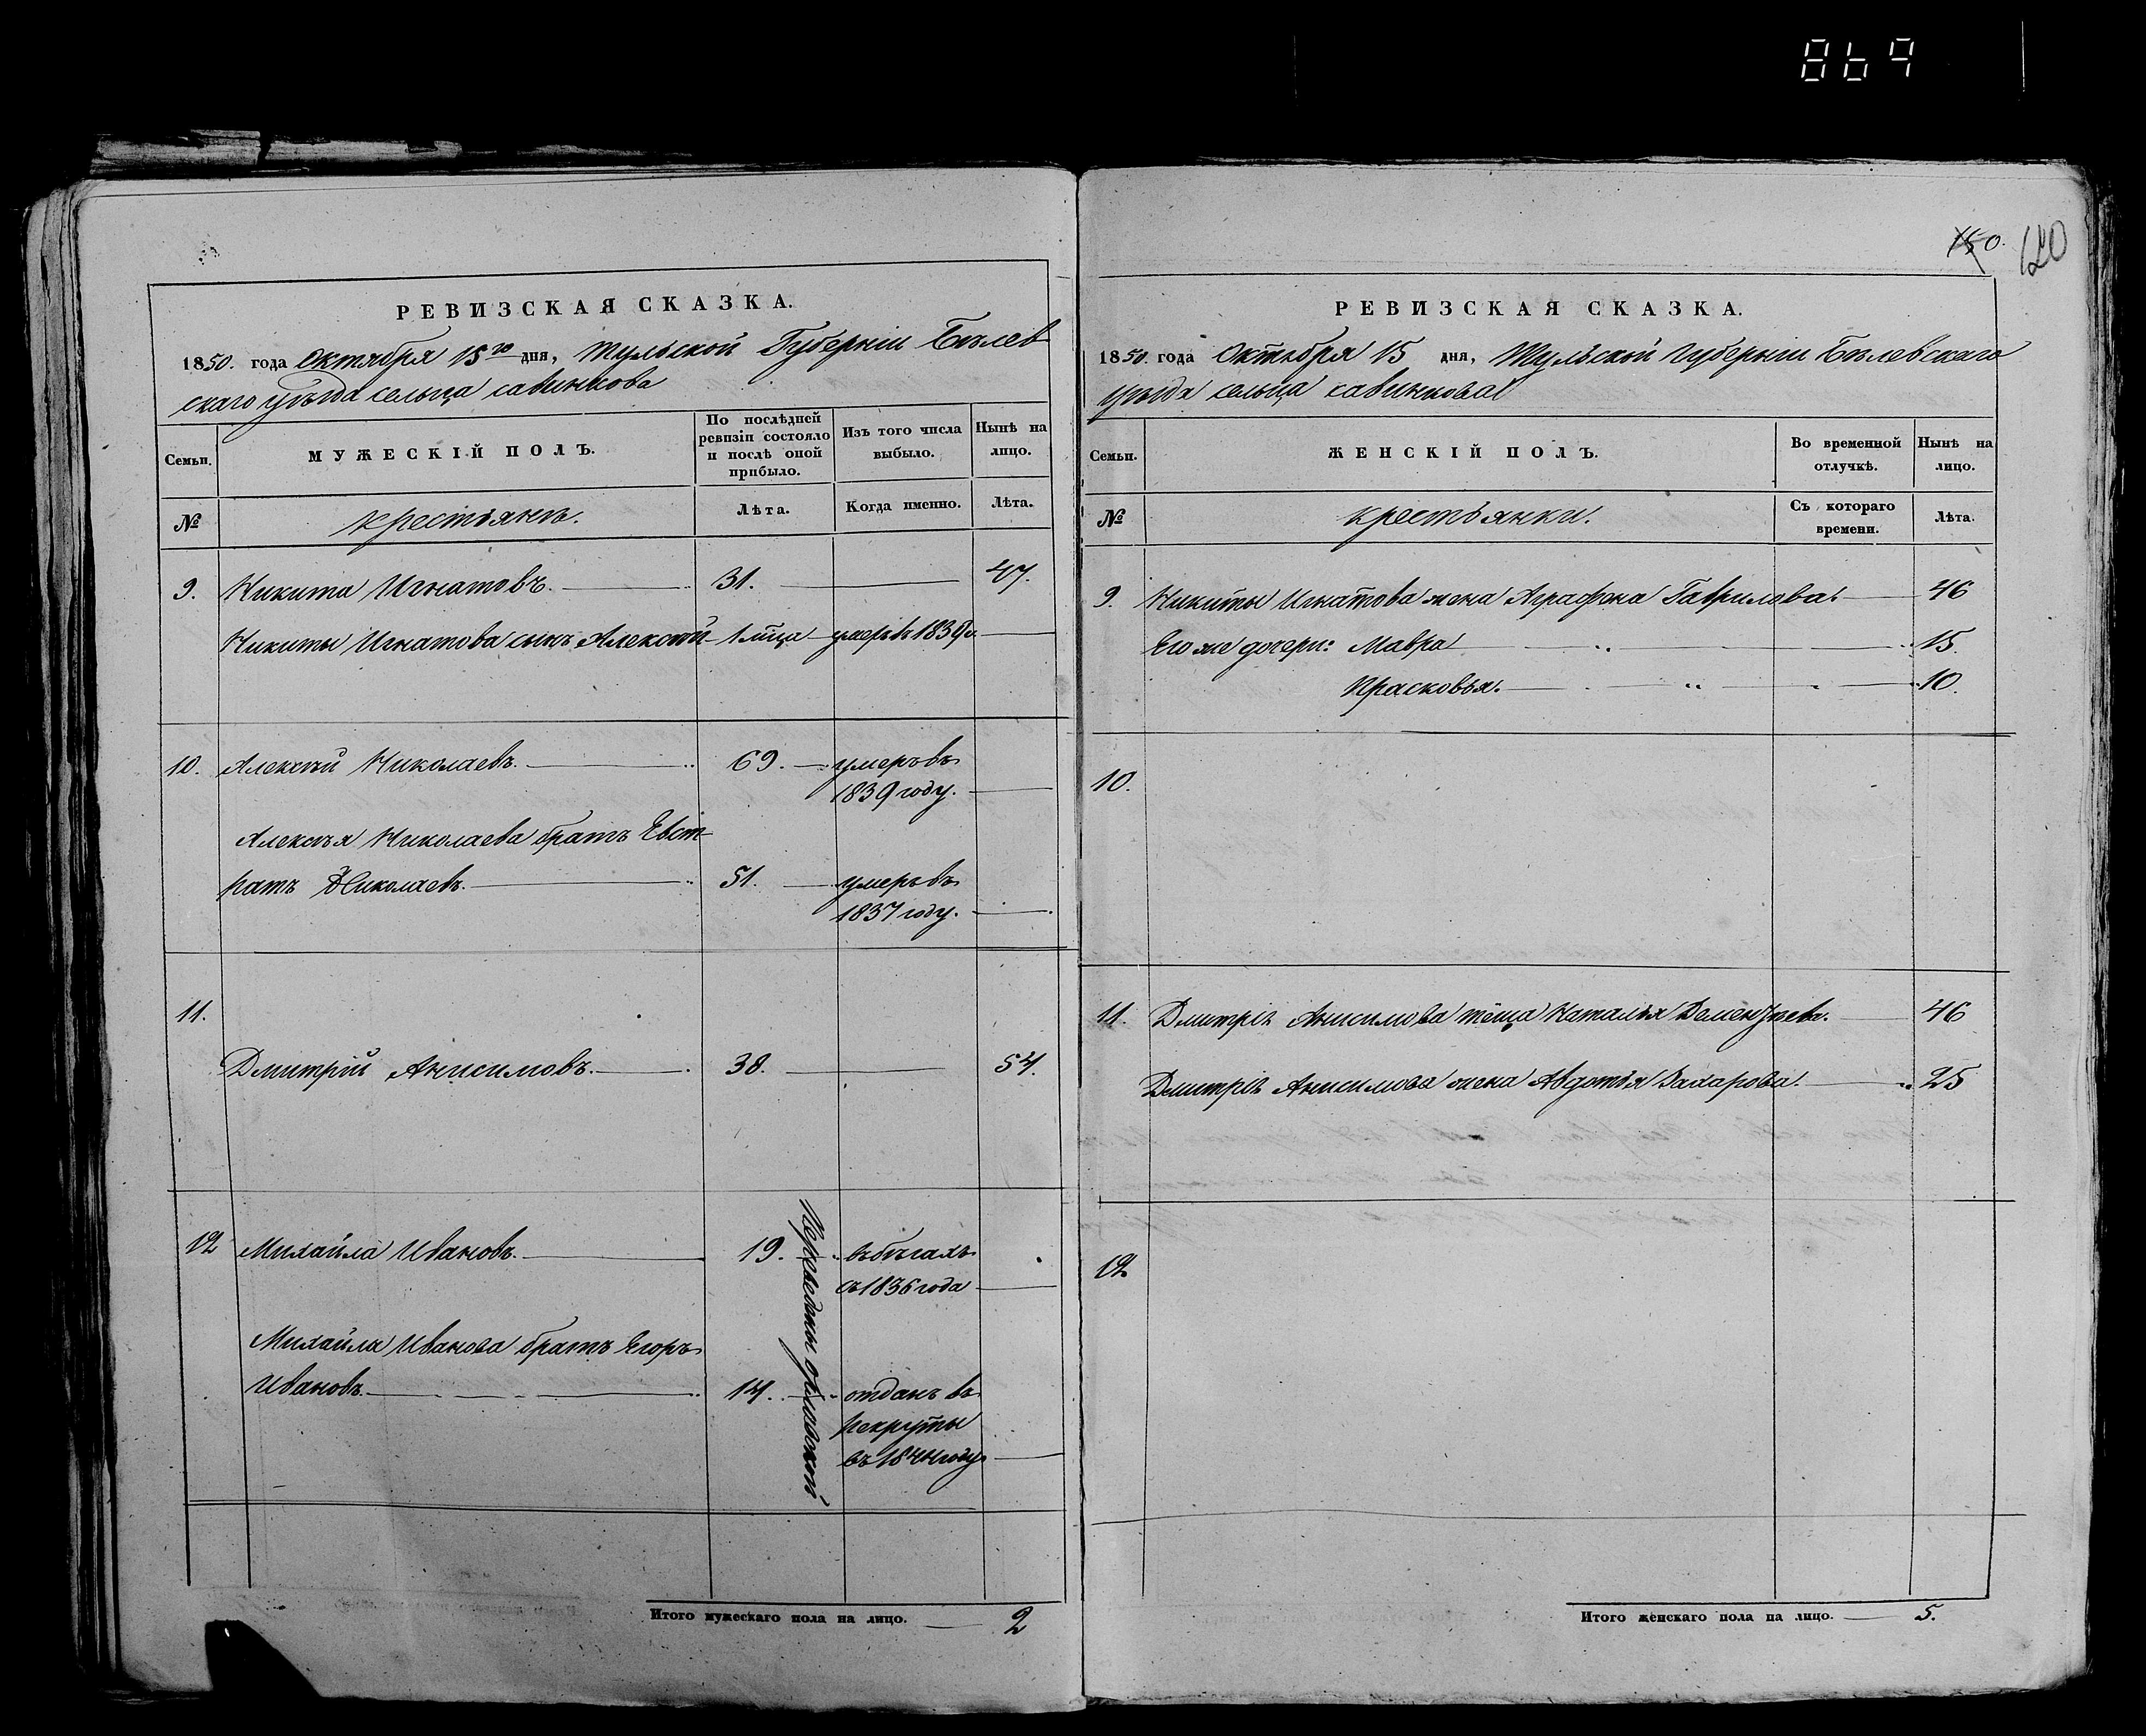 869
150. 120
РЕВИЗСКАЯ СКАЗКА.
1850. года Октября 15го дня, Тульской Губерніи Бѣлев
скаго уѣзда сельца савинкова
Семьи.
МУЖЕСКІЙ ПОЛЪ.
По послѣдней ревизіи состояло и послѣ оной прибыло.
Изъ того числа выбыло.
Нынѣ на лицо.
№
крестьянъ.
Лѣта.
Когда именно.
Лѣта.
9. Никита Игнатовъ. 31. 47.
Никиты Игнатова сынъ Алексѣй 1 мца умеръ въ 1834
10. Алексѣй Николаевъ. 69. умеръ въ
1839 году.
Алексѣя Николаева братъ Евст
ратъ Николаевъ. 51. умеръ въ
1837 году.
11.
Дмитрій Анисимовъ. 38. 54.
12 Михайла Ивановъ. 19. въ бѣгахъ
съ 1836 года
Михайла Иванова братъ Егоръ
Ивановъ. 14. отданъ въ
рекруты
въ 1844 году
Переведены
Итого мужескаго пола на лицо. 2
РЕВИЗСКАЯ СКАЗКА.
1850. года Октября 15 дня, Тульской Губерніи Бѣлевскаго
уѣзда сельца савинкова
Семьи.
ЖЕНСКІЙ ПОЛЪ.
Во временной отлучкѣ.
Нынѣ на лицо.
№
крестьянки.
Съ котораго времени.
Лѣта.
9. Никиты Игнатова жена Аграфена Гаврилова. 46
Его же дочери: Мавра 15.
Прасковья. 10.
10.
11. Дмитрія Анисимова тёща Наталья 46
Дмитрія Анисимова жена Авдотья Захарова. 25
12
Итого женскаго пола на лицо. 5.